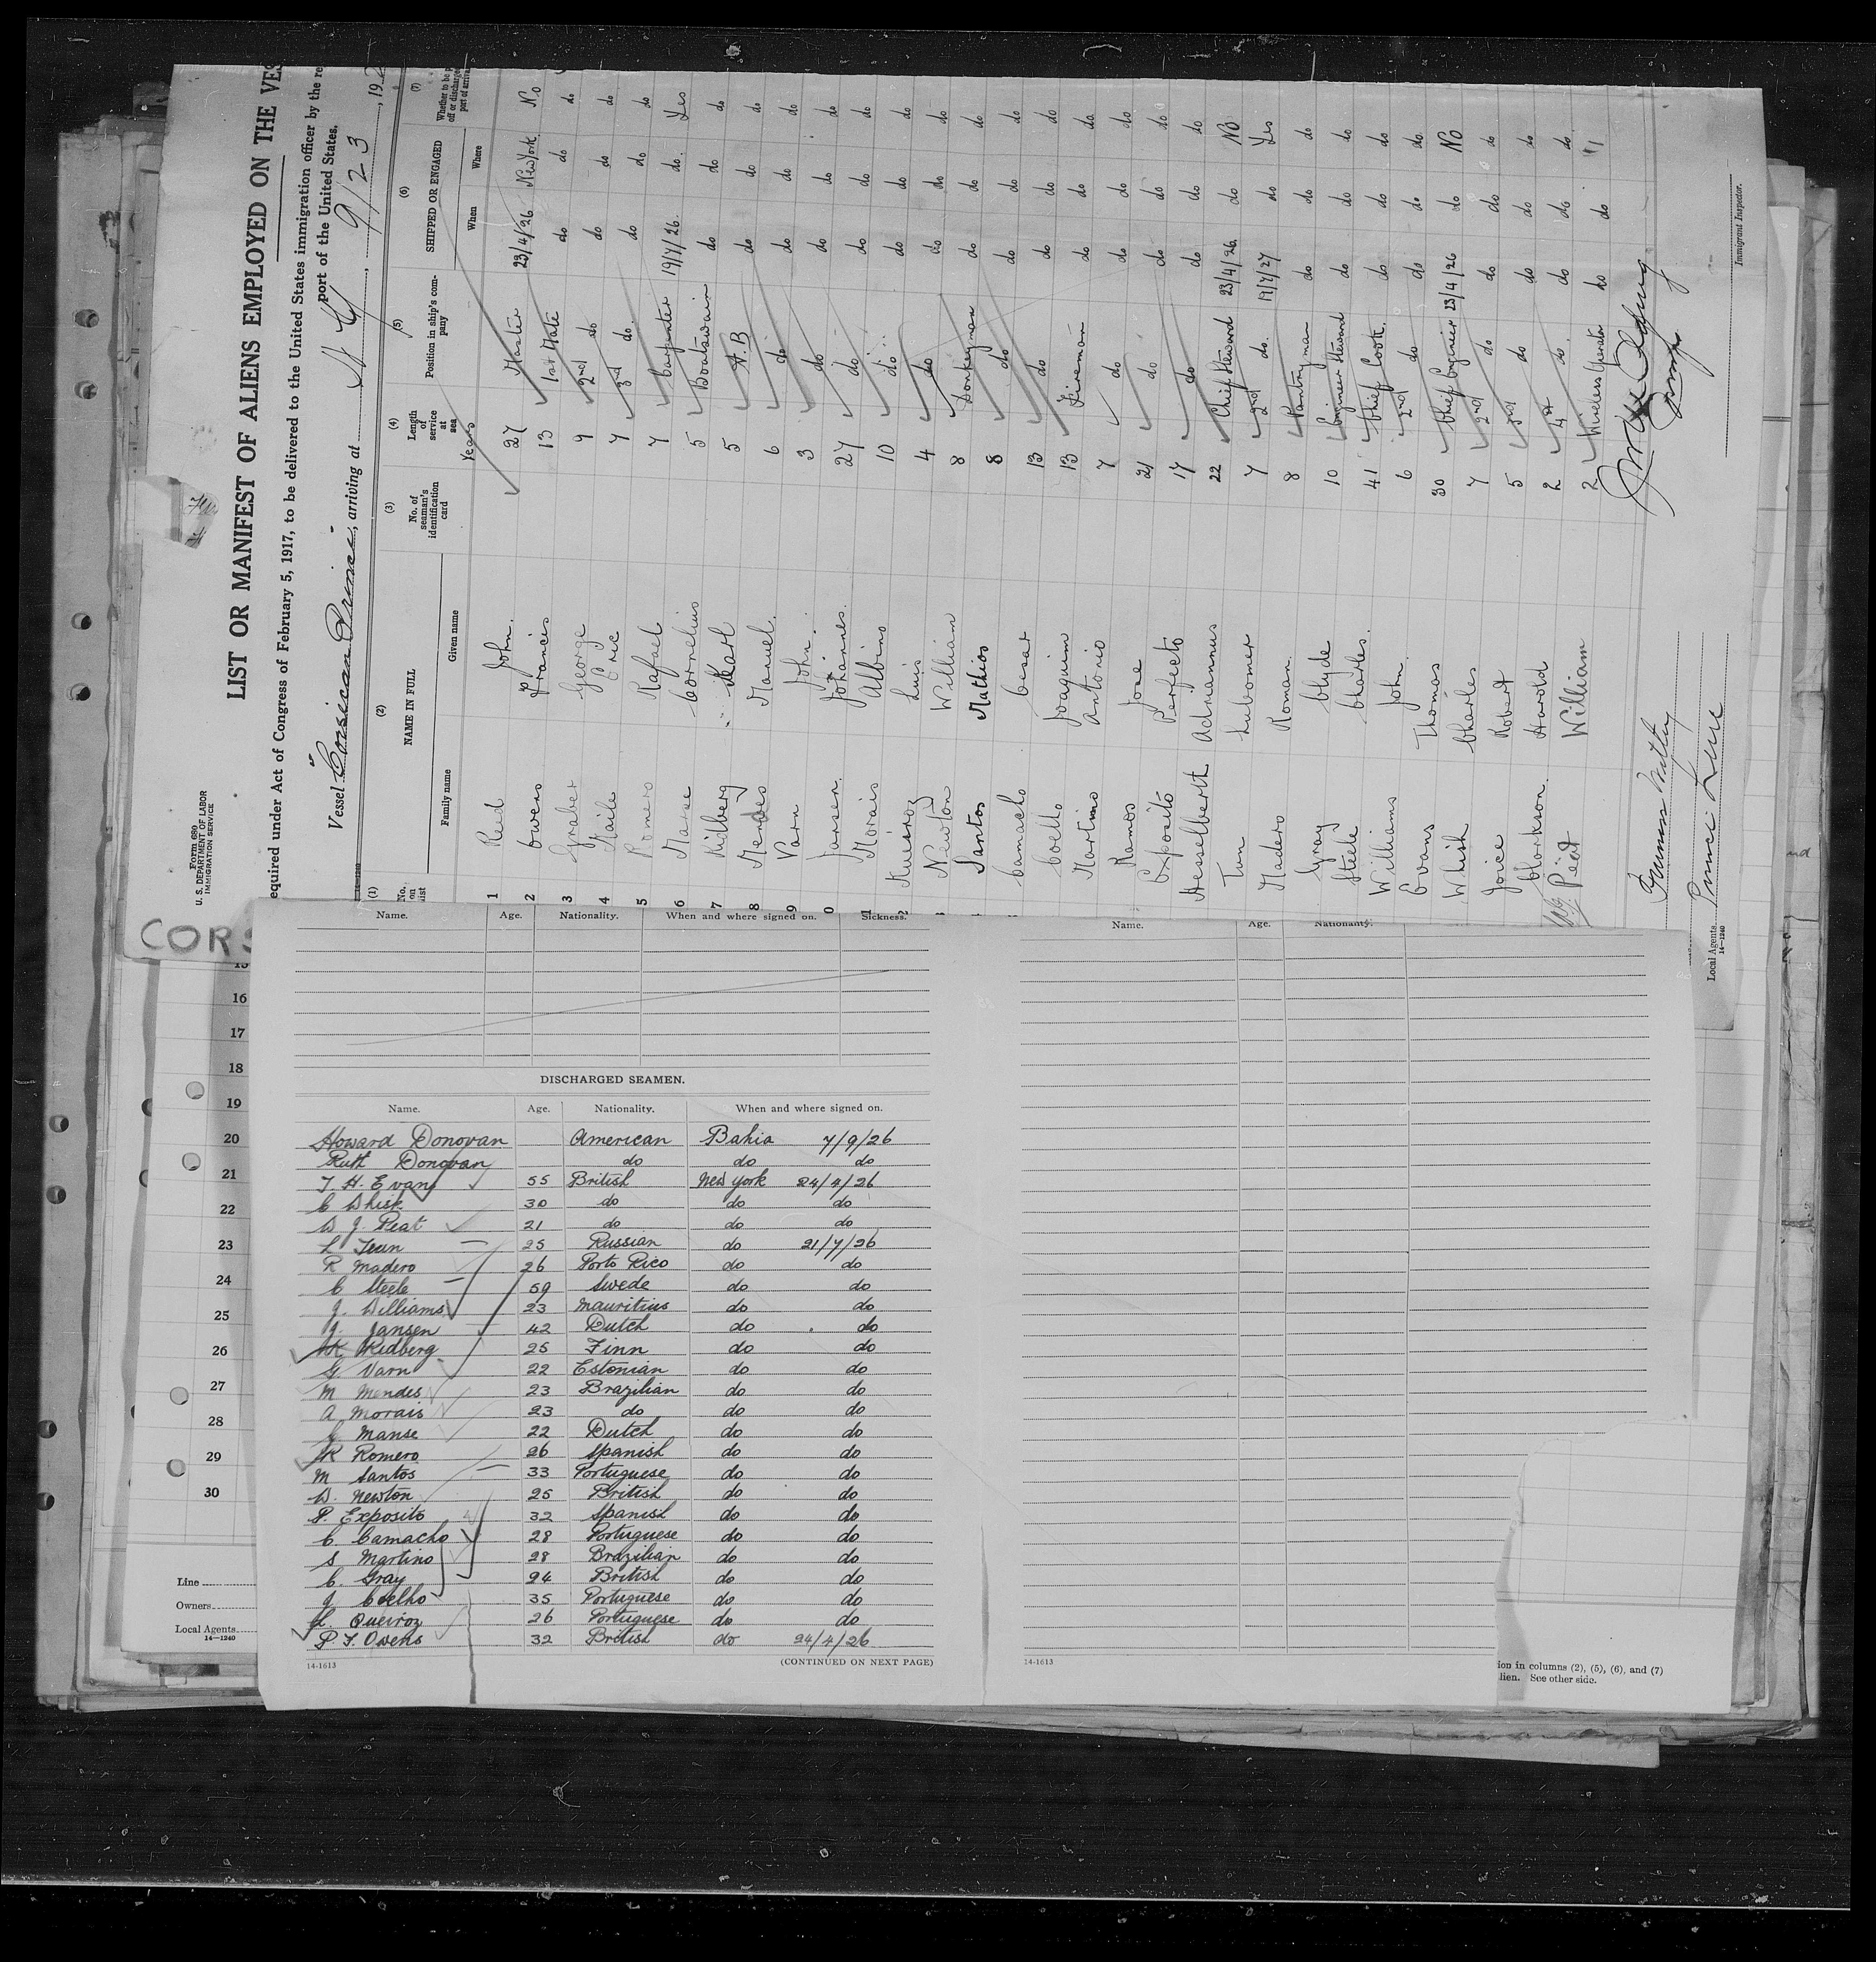 Form 680
U. S. DEPARTMENT OF LABOR
IMMIGRATION SERVICE
LIST OR MANIFEST OF ALIENS EMPLOYED ON THE VES
equired under Act of Congress of February 5, 1917, to be delivered to the United States immigration officer by the re
port of the United States.
Vessel "Corsican Prince", arriving at N Y, 9/23, 192
(1) No. on list
(2) NAME IN FULL
Family name Given name
(3) No. of seaman's identification card
(4) Length of service at sea
Years
(5) Position in ship's company
(6) SHIPPED OR ENGAGED
When Where
(7) Whether to be off or discharged port of arrival
1 Reed John. 27 Master 23/4/26 New York No
2 Owens P Francis 13 1st Mate do do do
3 Graber George 9 2nd do do do do
4 Maile Eric 7 3rd do. do do do
5 Romero Rafael 7 Carpenter 19/7/26. do. Yes
6 Manse Cornelius 5 Boatswain do do do
7 Ridberg Karl 5 A.B do do do
8 Mendes Manuel. 6 do do do do
9 Varn John. 3 do do do do
0 Jansen. Johannes. 27 do do do do
1 Morais Albino 10 do do do do
2 Kueiroz Luis 4 do do do do
Newton William 8 Donkeyman do do do
Santos Mathios 8 do do do do
Camacho Cesar 13 do do do do
Coello Joaquim 13 Fireman do do do
Martino Antonio 7 do do do do
Ramos Jose 21 do do do do
Exposito Perfecto 17 do do do do
Hesselberth Adriannus 22 Chief Steward 23/4/26 do No
Tun Lubomer 7 2nd do. 19/7/27 do Yes
Madero Roman. 8 Pantryman do do do
Gray Clyde 10 Engineer Steward do do do
Steele Charles. 41 Chief Cook. do do do
Williams John. 6 2nd do do do do
Evans Thomas 30 Chief Engineer 23/4/26 do No
Whish Charles 7 2nd do do do do
Joice Robert 5 3rd do do do do
Clarkson. Harold 2 4th do. do do do
Peat William 2 Wireless Operator do do "
Immigrant Inspector.
Local Agents
14—1240
CORS
Name. Age. Nationality. When and where signed on. Sickness.
Name. Age. Nationality.
DISCHARGED SEAMEN.
Name. Age. Nationality. When and where signed on.
Howard Donovan American Bahia 7/9/26
Ruth Donovan do do do
T. H. Evans 55 British New York 24/4/26
C Whish 30 do do do
W J. Peat 21 do do do
L Teun 25 Russian do 21/7/26
R Madero 26 Porto Rico do do
C Steele 59 Swede do do
J. Williams 23 Mauritius do do
J. Jansen 42 Dutch do do
K Ridberg 25 Finn do do
G Varn 22 Estonian do do
M Mendes 23 Brazilian do do
A Morais 23 do do do
C Manse 22 Dutch do do
R Romero 26 Spanish do do
M Santos 33 Portuguese do do
W. Newton 25 British do do
P. Exposito 32 Spanish do do
C. Camacho 28 Portuguese do do
S Martino 28 Brazilian do do
C. Gray 24 British do do
J Coelho 35 Portuguese do do
L. Queiroz 26 Portuguese do do
P F. Owens 32 British do 24/4/26
14-1613 (CONTINUED ON NEXT PAGE)
14-1613
15
16
17
18
19
20
21
22
23
24
25
26
27
28
29
30
Line
Owners
Local Agents
14—1240
ion in columns (2), (5), (6), and (7)
lien. See other side.